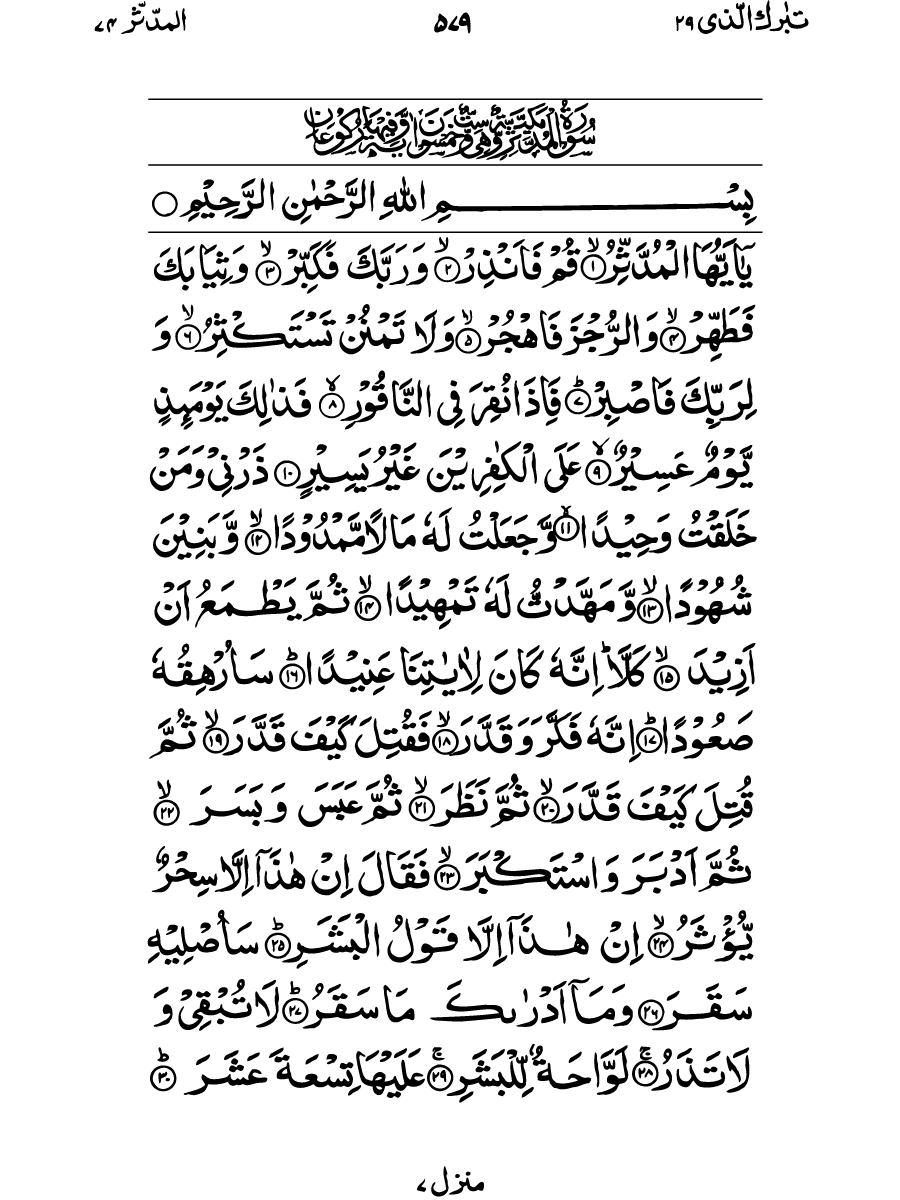 تبٰرك الّذی ٢٩ ۵۷۹ المدّثّر ۷۴
سُوْرَةُ الْمُدَّثِّرِ مَكِّيَّةٌ وَّهِيَ سِتٌّ وَّخَمْسُوْنَ اٰيَةً وَّفِيْهَا رُكُوْعَانِ
بِسْمِ اللهِ الرَّحْمٰنِ الرَّحِيْمِ ○
يٰۤاَيُّهَا الْمُدَّثِّرُ ۙ‏﴿۱﴾ قُمْ فَاَنْذِرْ ۙ‏﴿۲﴾ وَرَبَّكَ فَكَبِّرْ ۙ‏﴿۳﴾ وَثِيَابَكَ
فَطَهِّرْ ۙ‏﴿۴﴾ وَالرُّجْزَ فَاهْجُرْ ۙ‏﴿۵﴾ وَلَا تَمْنُنْ تَسْتَكْثِرُ ۙ‏﴿۶﴾ وَ
لِرَبِّكَ فَاصْبِرْ ؕ‏﴿۷﴾ فَاِذَا نُقِرَ فِى النَّاقُوْرِ ۙ‏﴿۸﴾ فَذٰلِكَ يَوْمَٮِٕذٍ
يَّوْمٌ عَسِيْرٌ ۙ‏﴿۹﴾ عَلَى الْكٰفِرِيْنَ غَيْرُ يَسِيْرٍ ﴿۱۰﴾ ذَرْنِىْ وَمَنْ
خَلَقْتُ وَحِيْدًا ۙ‏﴿۱۱﴾ وَّجَعَلْتُ لَهٗ مَالًا مَّمْدُوْدًا ۙ‏﴿۱۲﴾ وَّبَنِيْنَ
شُهُوْدًا ۙ‏﴿۱۳﴾ وَّمَهَّدْتُّ لَهٗ تَمْهِيْدًا ۙ‏﴿۱۴﴾ ثُمَّ يَطْمَعُ اَنْ
اَزِيْدَ ۙ‏﴿۱۵﴾ كَلَّا ؕ اِنَّهٗ كَانَ لِاٰيٰتِنَا عَنِيْدًا ؕ‏﴿۱۶﴾ سَاُرْهِقُهٗ
صَعُوْدًا ؕ‏﴿۱۷﴾ اِنَّهٗ فَكَّرَ وَقَدَّرَ ۙ‏﴿۱۸﴾ فَقُتِلَ كَيْفَ قَدَّرَ ۙ‏﴿۱۹﴾ ثُمَّ
قُتِلَ كَيْفَ قَدَّرَ ۙ‏﴿۲۰﴾ ثُمَّ نَظَرَ ۙ‏﴿۲۱﴾ ثُمَّ عَبَسَ وَبَسَرَ ۙ‏﴿۲۲﴾
ثُمَّ اَدْبَرَ وَاسْتَكْبَرَ ۙ‏﴿۲۳﴾ فَقَالَ اِنْ هٰذَاۤ اِلَّا سِحْرٌ
يُّؤْثَرُ ۙ‏﴿۲۴﴾ اِنْ هٰذَاۤ اِلَّا قَوْلُ الْبَشَرِ ؕ‏﴿۲۵﴾ سَاُصْلِيْهِ
سَقَرَ ﴿۲۶﴾ وَمَاۤ اَدْرٰٮكَ مَا سَقَرُ ؕ‏﴿۲۷﴾ لَا تُبْقِىْ وَ
لَا تَذَرُ ۚ‏﴿۲۸﴾ لَوَّاحَةٌ لِّلْبَشَرِ ۚ‏﴿۲۹﴾ عَلَيْهَا تِسْعَةَ عَشَرَ ؕ‏﴿۳۰﴾
منزل ۷